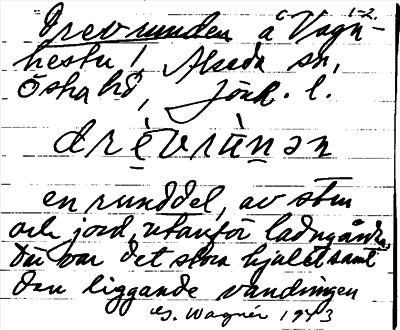 Drevrunden å Vagn-
hestu!, Alseda sn,
Östra hd, Jönk. l.
drèvrùnən
en runddel, av sten
och jord, utanför ladugården,
där var det stora hjulet samt
den liggande vandringen
G. Wagnér 1943